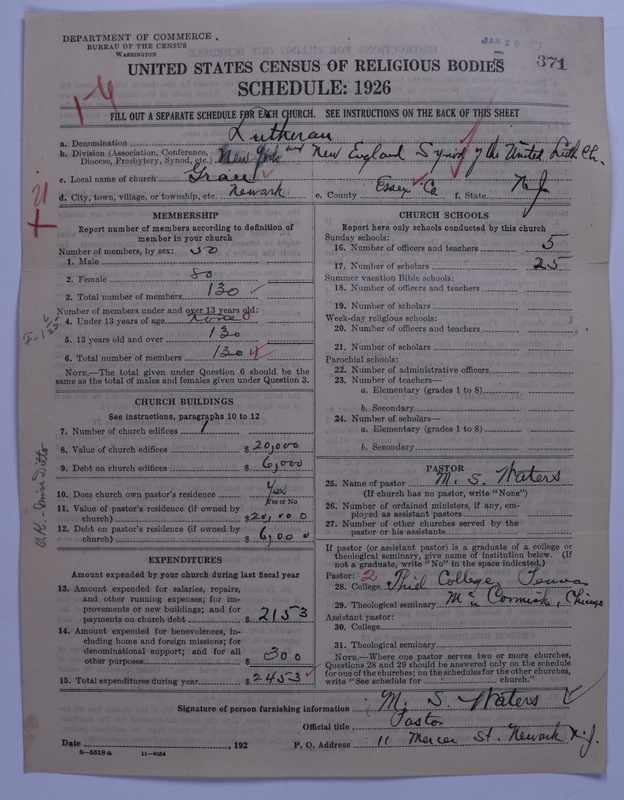 DEPARTMENT OF COMMERCE
BUREAU OF THE CENSUS
WASHINGTON
JAN 20
371
UNITED STATES CENSUS OF RELIGIOUS BODIES
SCHEDULE: 1926
1-4
FILL OUT A SEPARATE SCHEDULE FOR EACH CHURCH. SEE INSTRUCTIONS ON THE BACK OF THIS SHEET
a. Denomination Lutheran
b. Division (Association, Conference, Diocese, Presbytery, Synod, etc.) New York and New England Synod of the United Luth Ch.
c. Local name of church Grace
d. City, town, village, or township, etc. Newark e. County Essex Co f. State N J
MEMBERSHIP
Report number of members according to definition of
member in your church
Number of members, by sex:
1. Male 50
2. Female 80
3. Total number of members 130
Number of members under and over 13 years old:
4. Under 13 years of age None 0
5. 13 years old and over 130
6. Total number of members 130
NOTE.—The total given under Question 6 should be the
same as the total of males and females given under Question 3.
CHURCH BUILDINGS
See instructions, paragraphs 10 to 12
7. Number of church edifices 1
8. Value of church edifices $ 20,000
9. Debt on church edifices $ 6,000
10. Does church own pastor's residence Yes
Yes or No
11. Value of pastor's residence (if owned by
church) $ 20,000
12. Debt on pastor's residence (if owned by
church) $ 6,000
EXPENDITURES
Amount expended by your church during last fiscal year
13. Amount expended for salaries, repairs,
and other running expenses; for im-
provements or new buildings; and for
payments on church debt $ 2153
14. Amount expended for benevolences, in-
cluding home and foreign missions; for
denominational support; and for all
other purposes $ 300
15. Total expenditures during year $ 2453
CHURCH SCHOOLS
Report here only schools conducted by this church
Sunday schools:
16. Number of officers and teachers 5
17. Number of scholars 25
Summer vacation Bible schools:
18. Number of officers and teachers
19. Number of scholars
Week-day religious schools:
20. Number of officers and teachers
21. Number of scholars
Parochial schools:
22. Number of administrative officers
23. Number of teachers—
a. Elementary (grades 1 to 8)
b. Secondary
24. Number of scholars—
a. Elementary (grades 1 to 8)
b. Secondary
PASTOR
25. Name of pastor M. S. Waters
(If church has no pastor, write "None")
26. Number of ordained ministers, if any, em-
ployed as assistant pastors
27. Number of other churches served by the
pastor or his assistants
If pastor (or assistant pastor) is a graduate of a college or
theological seminary, give name of institution below. (If
not a graduate, write "No" in the space indicated.)
Pastor: 2
28. College Thiel College, Penna
29. Theological seminary Mc Cormick, Chicago
Assistant pastor:
30. College
31. Theological seminary
NOTE.—Where one pastor serves two or more churches,
Questions 28 and 29 should be answered only on the schedule
for one of the churches; on the schedules for the other churches,
write "See schedule for church."
Signature of person furnishing information M. S. Waters
Official title Pastor
Date , 192 P. O. Address 11 Mercer St. Newark N.J.
8-5518a 11-9554